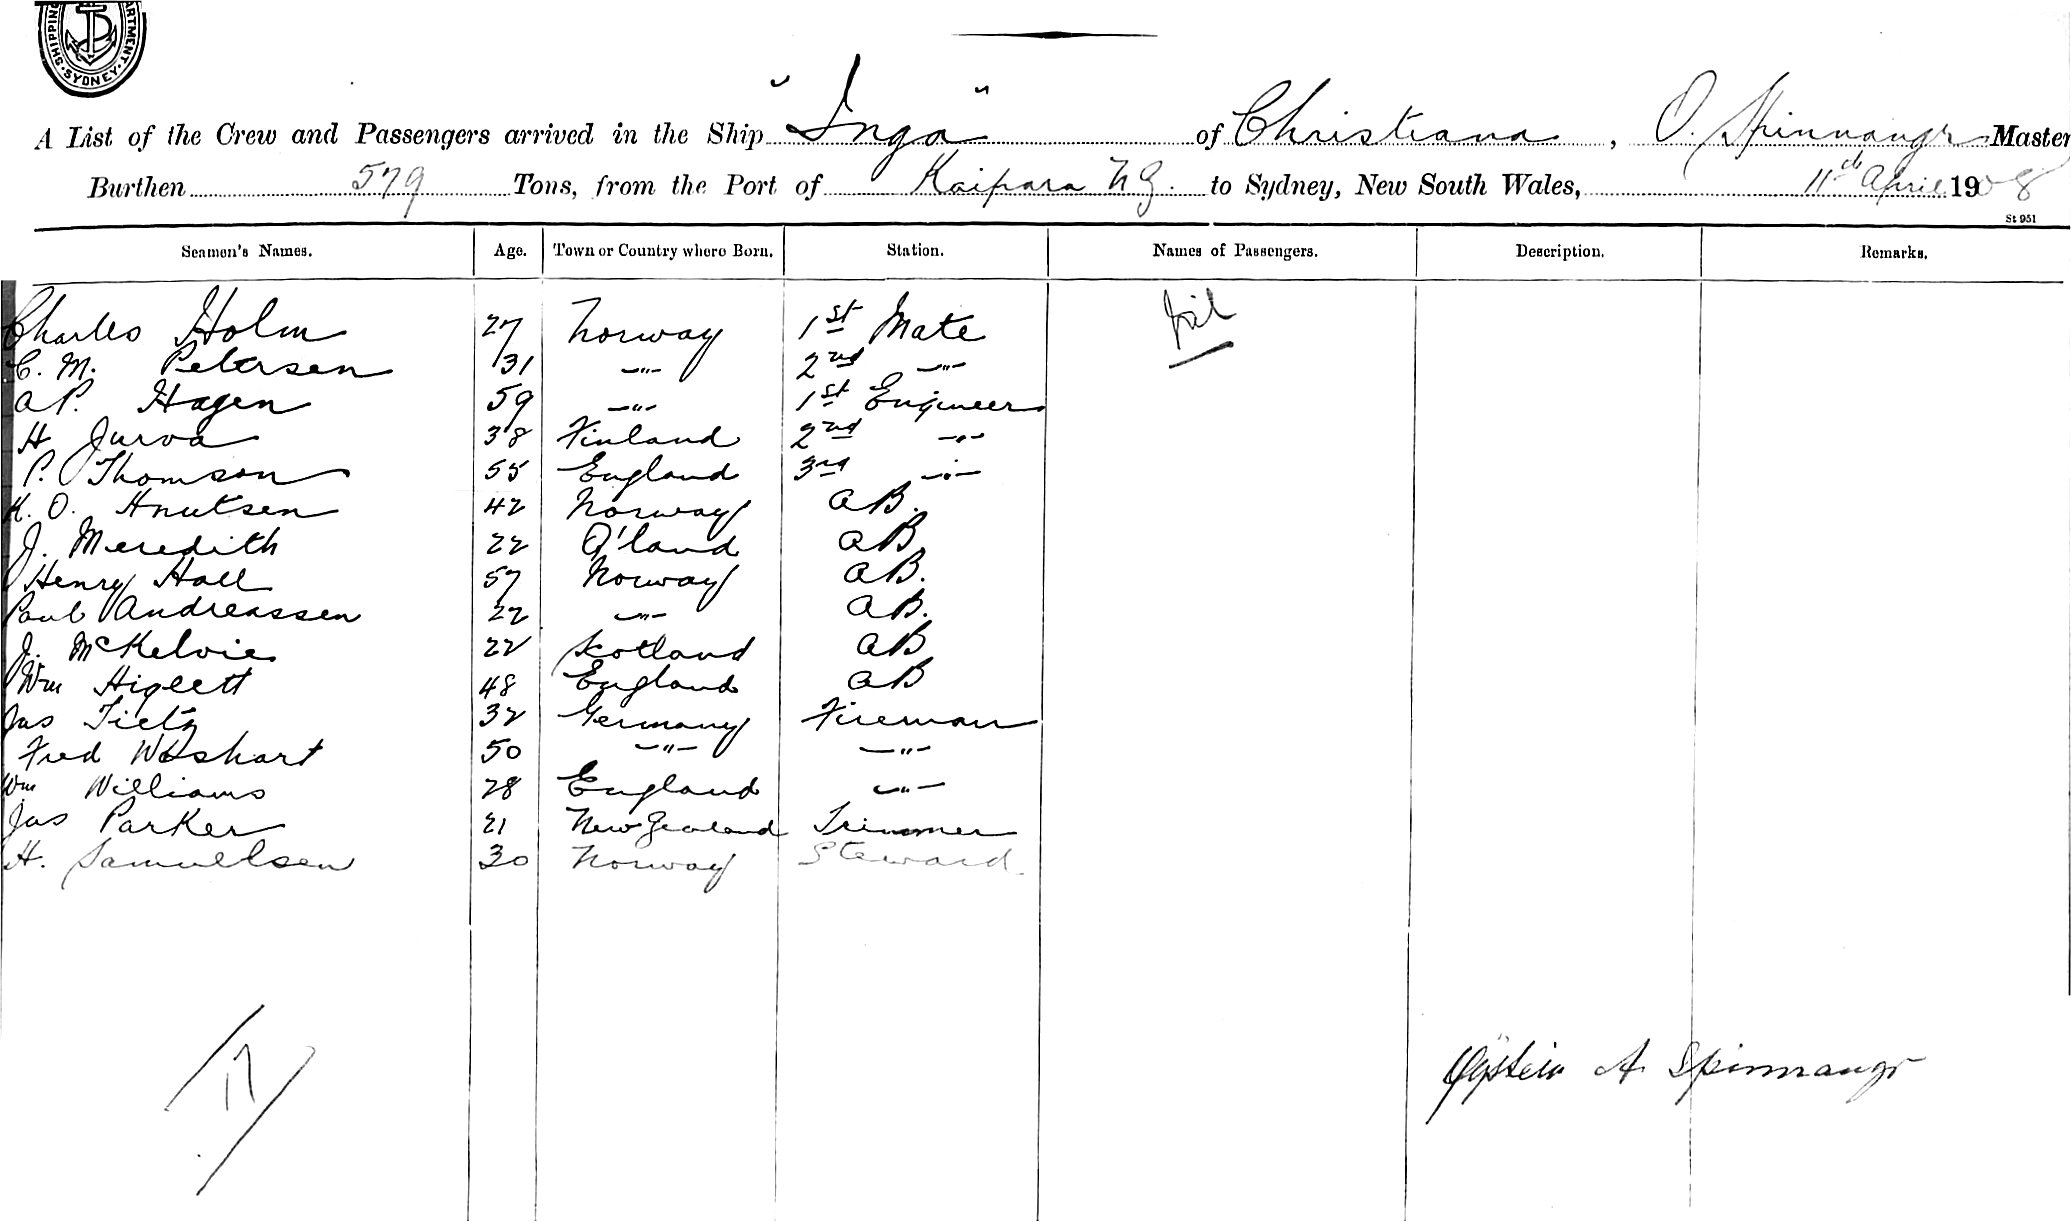 SHIPPING DEPARTMENT. SYDNEY.
A List of the Crew and Passengers arrived in the Ship "Inga" of Christiana, O. Spinnangr Master
Burthen 579 Tons, from the Port of Kaipara N Z. to Sydney, New South Wales, 11th April 1908
St 951
Seamen's Names. Age. Town or Country where Born. Station. Names of Passengers. Description. Remarks.
Charles Holm 27 Norway 1st Mate Nil
C. M. Petersen 31 -"- 2nd -"-
A P. Hagen 59 -"- 1st Engineer
H Jurva 38 Finland 2nd -"-
P. Thomson 55 England 3rd -"-
K. O. Knutsen 42 Norway A B.
J. Meredith 22 Q'land A B
Henry Hall 57 Norway A B.
Paul Andreassen 22 -"- A B.
J. McKelvie 22 Scotland A B
Wm Higlett 48 England A B
Jas Tietz 32 Germany Fireman
Fred Wishart 50 -"- -"-
Wm Williams 28 England -"-
Jas Parker 21 New Zealand Trimmer
H. Samuelsen 30 Norway Steward
17
Øystein A. Spinnangr